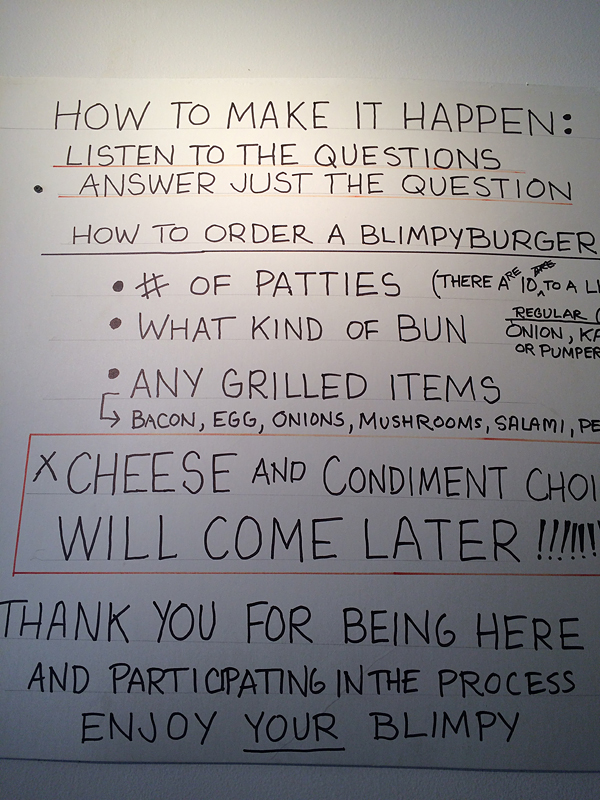 HOW TO MAKE IT HAPPEN:
LISTEN TO THE QUESTIONS
• ANSWER JUST THE QUESTION
HOW TO ORDER A BLIMPYBURGER
• # OF PATTIES (THERE ARE 10, TO A
• WHAT KIND OF BUN
REGULAR (
ONION,
OR
• ANY GRILLED ITEMS
↳ BACON, EGG, ONIONS, MUSHROOMS, SALAMI,
X CHEESE AND CONDIMENT
WILL COME LATER !!!!!!!
THANK YOU FOR BEING HERE
AND PARTICIPATING IN THE PROCESS
ENJOY YOUR BLIMPY